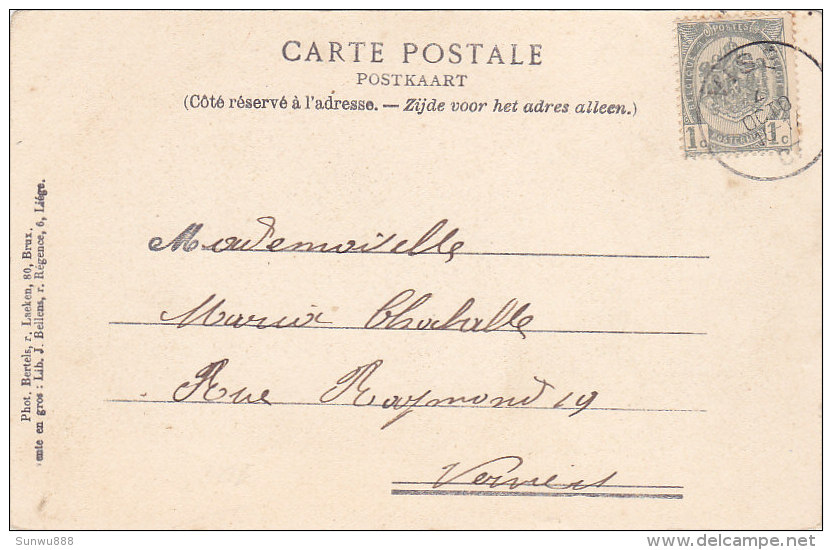 CARTE POSTALE
POSTKAART
(Côté réservé à l'adresse. — Zijde voor het adres alleen.)
POSTES
1c 1c
OCTO
Mademoiselle
Maria Chaballe
Rue Raymond 19
Verviers
Phot. Bertels, r. Laeken, 80, Brux.
vente en gros : Lib. J. Bellens, r. Régence, 6, Liége.
Sunwu888
delcampe.net